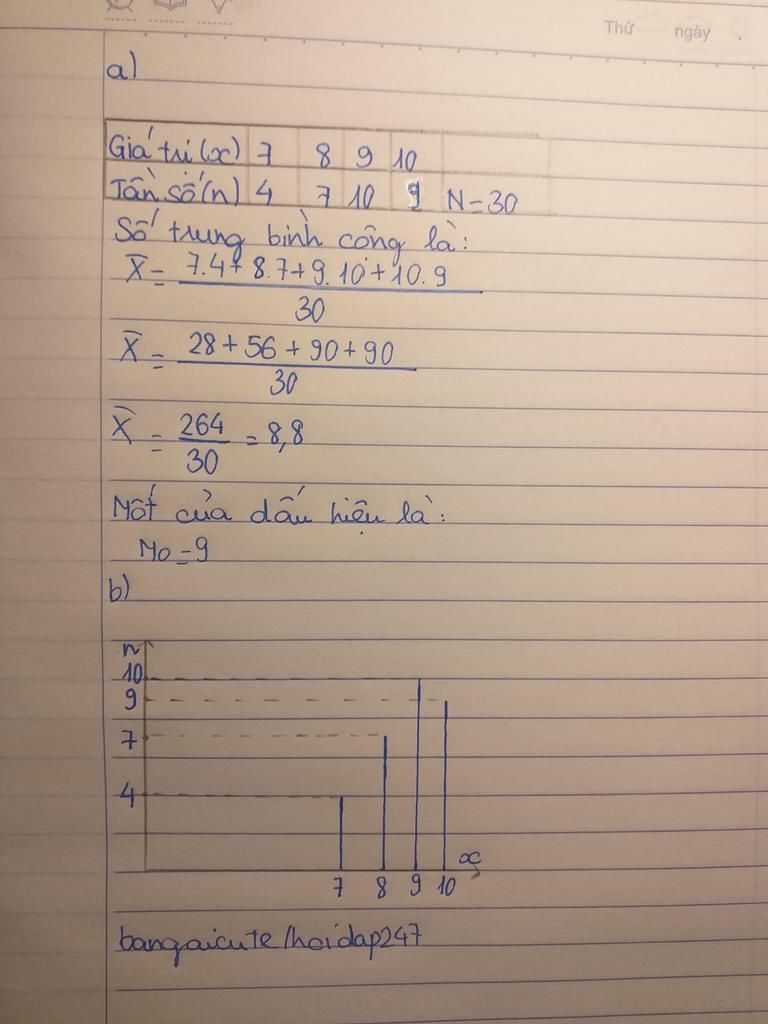 Thứ ngày
a)
Giá trị (x) 7 8 9 10
Tần số (n) 4 7 10 9 N=30
Số trung bình cộng là:
X̄ = 7.4+8.7+9.10+10.9
30
X̄ = 28+56+90+90
30
X̄ = 264 = 8,8
30
Mốt của dấu hiệu là:
Mo=9
b)
n
10
9
7
4
x
7 8 9 10
bangaicute/hoidap247